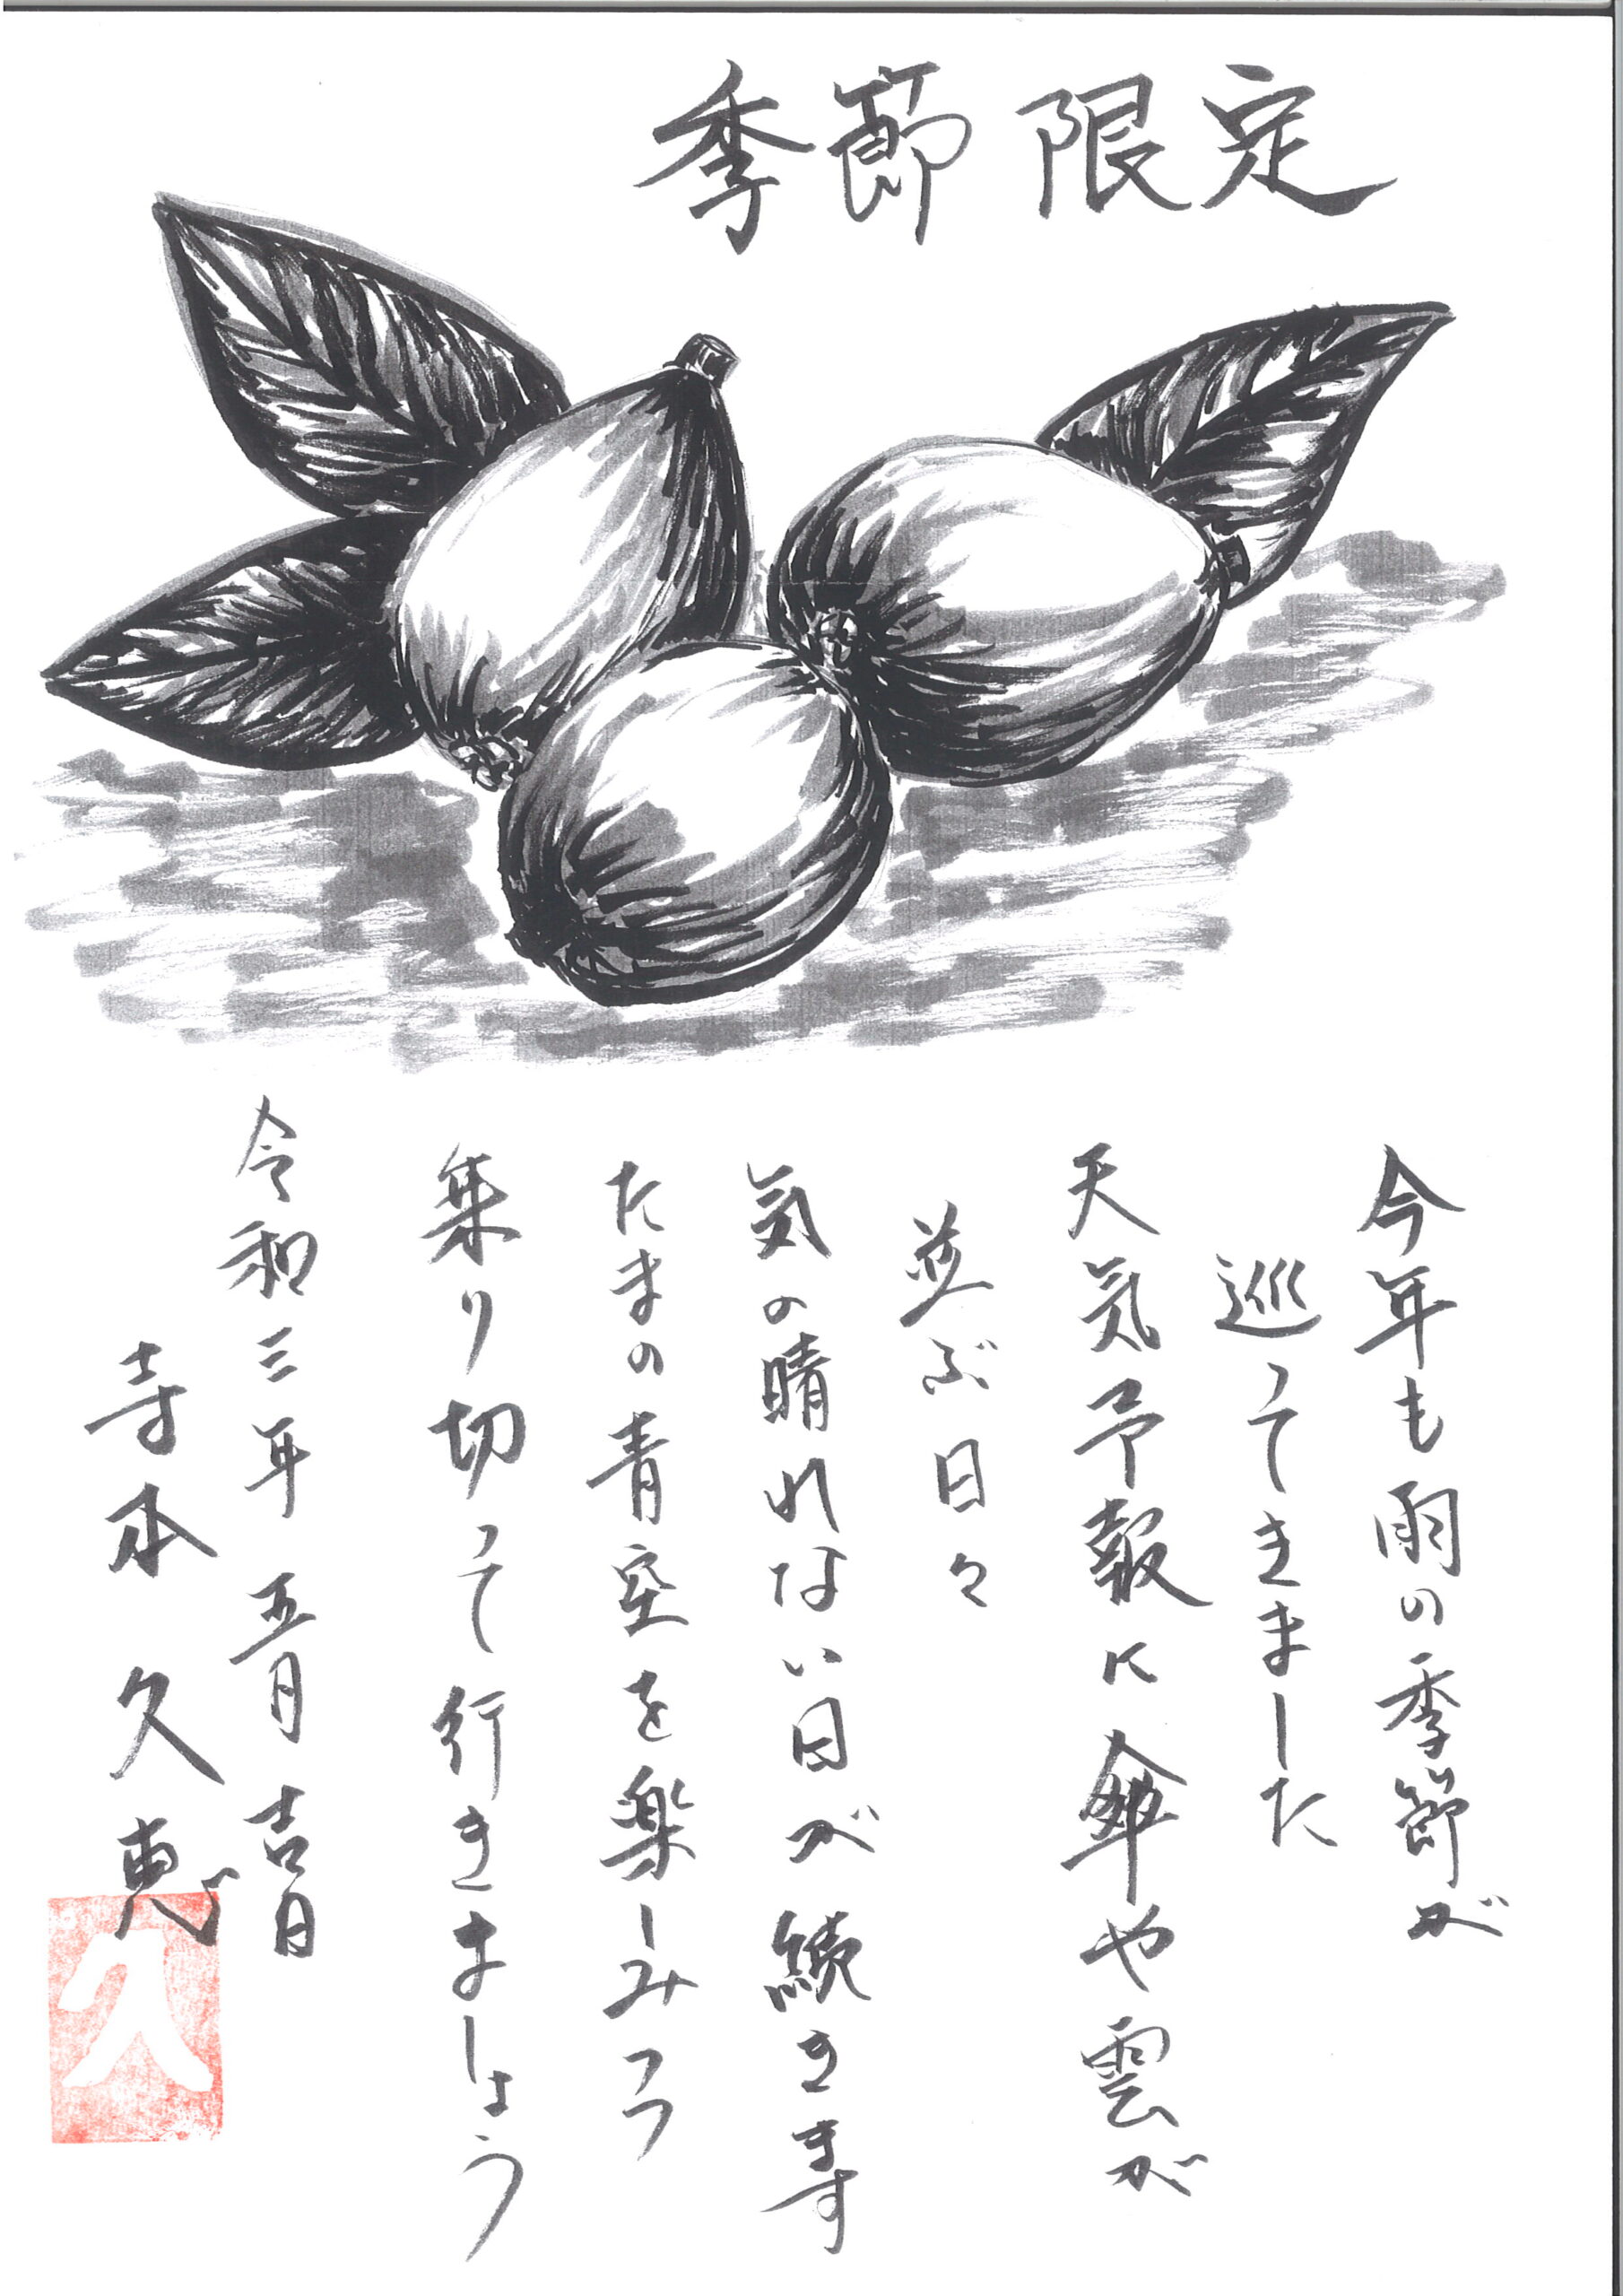 季節限定
今年も雨の季節が
巡ってきました
天気予報に傘や雲が
並ぶ日々
気の晴れない日が続きます
たまの青空を楽しみつつ
乗り切って行きましょう
令和三年 五月 吉日
寺本 久恵
久